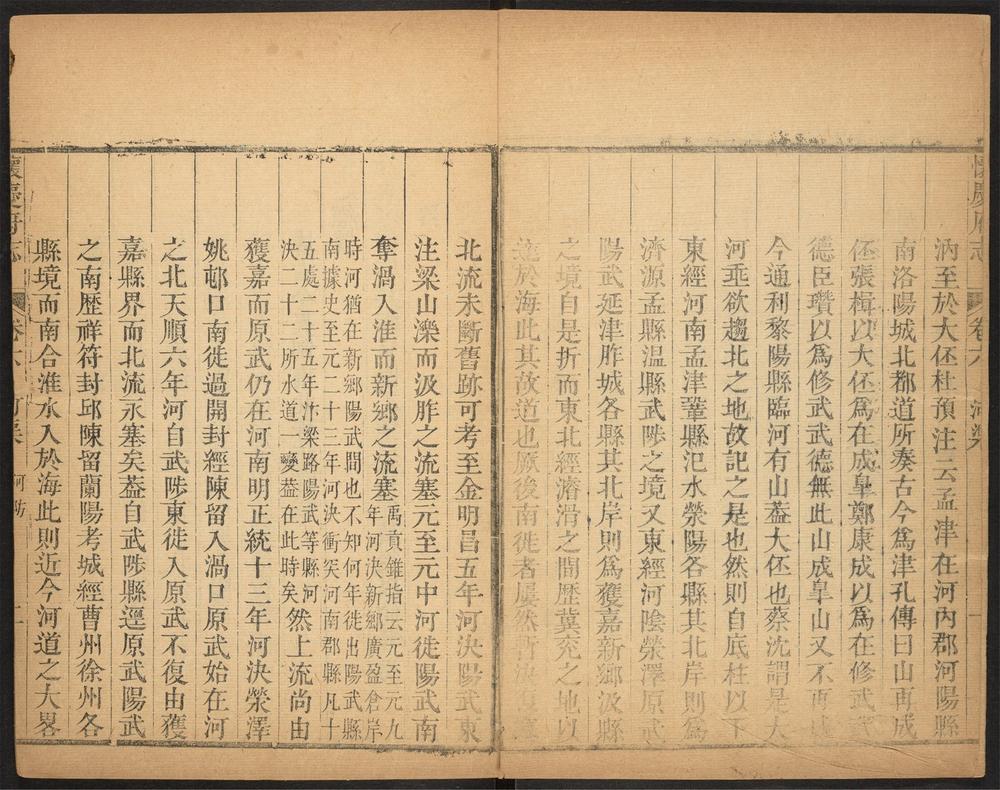 懷慶府志 卷六 河渠 一
汭至於大伾杜預注云孟津在河內郡河陽縣
南洛陽城北都道所奏古今為津孔傳曰山再成
伾張楫以大伾為在成皐鄭康成以為在修武武
德臣瓚以為修武武德無此山成皐山又不再成
今通利黎陽縣臨河有山葢大伾也蔡沈謂是大
河垂欲趨北之地故記之是也然則自底柱以下
東經河南孟津鞏縣汜水滎陽各縣其北岸則為
濟源孟縣温縣武陟之境又東經河陰滎澤原武
陽武延津胙城各縣其北岸則為獲嘉新鄉汲縣
之境自是折而東北經濬滑之間歴冀兖之地以
達於海此其故道也厥後南徙者屢然
北流未斷舊跡可考至金明昌五年河決陽武東
注梁山濼而汲胙之流塞元至元中河徙陽武南
奪渦入淮而新鄉之流塞禹貢錐指云元至元九
年河決新鄉廣盈倉岸
時河猶在新鄉陽武間也不知何年徙出陽武縣
南據史至元二十三年河決衝突河南郡縣凡十
五處二十五年汴梁路陽武等縣河
決二十二所水道一變葢在此時矣然上流尚由
獲嘉而原武仍在河南明正統十三年河決滎澤
姚邨口南徙過開封經陳留入渦口原武始在河
之北天順六年河自武陟東徙入原武不復由獲
嘉縣界而北流永塞矣葢自武陟縣逕原武陽武
之南歴祥符封邱陳留蘭陽考城經曹州徐州各
縣境而南合淮水入於海此則近今河道之大畧
懷慶府志 卷六 河渠 河防 二